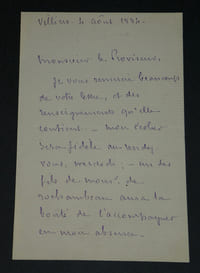 Villiers. 4 août 1884.
Monsieur le Proviseur,
Je vous remercie beaucoup
de votre lettre, et des
renseignements qu'elle
contient. – mon écolier
sera fidèle au rendez
vous, mercredi ; – un des
fils de mons. de
Rochambeau aura la
bonté de l'accompagner
en mon absence.